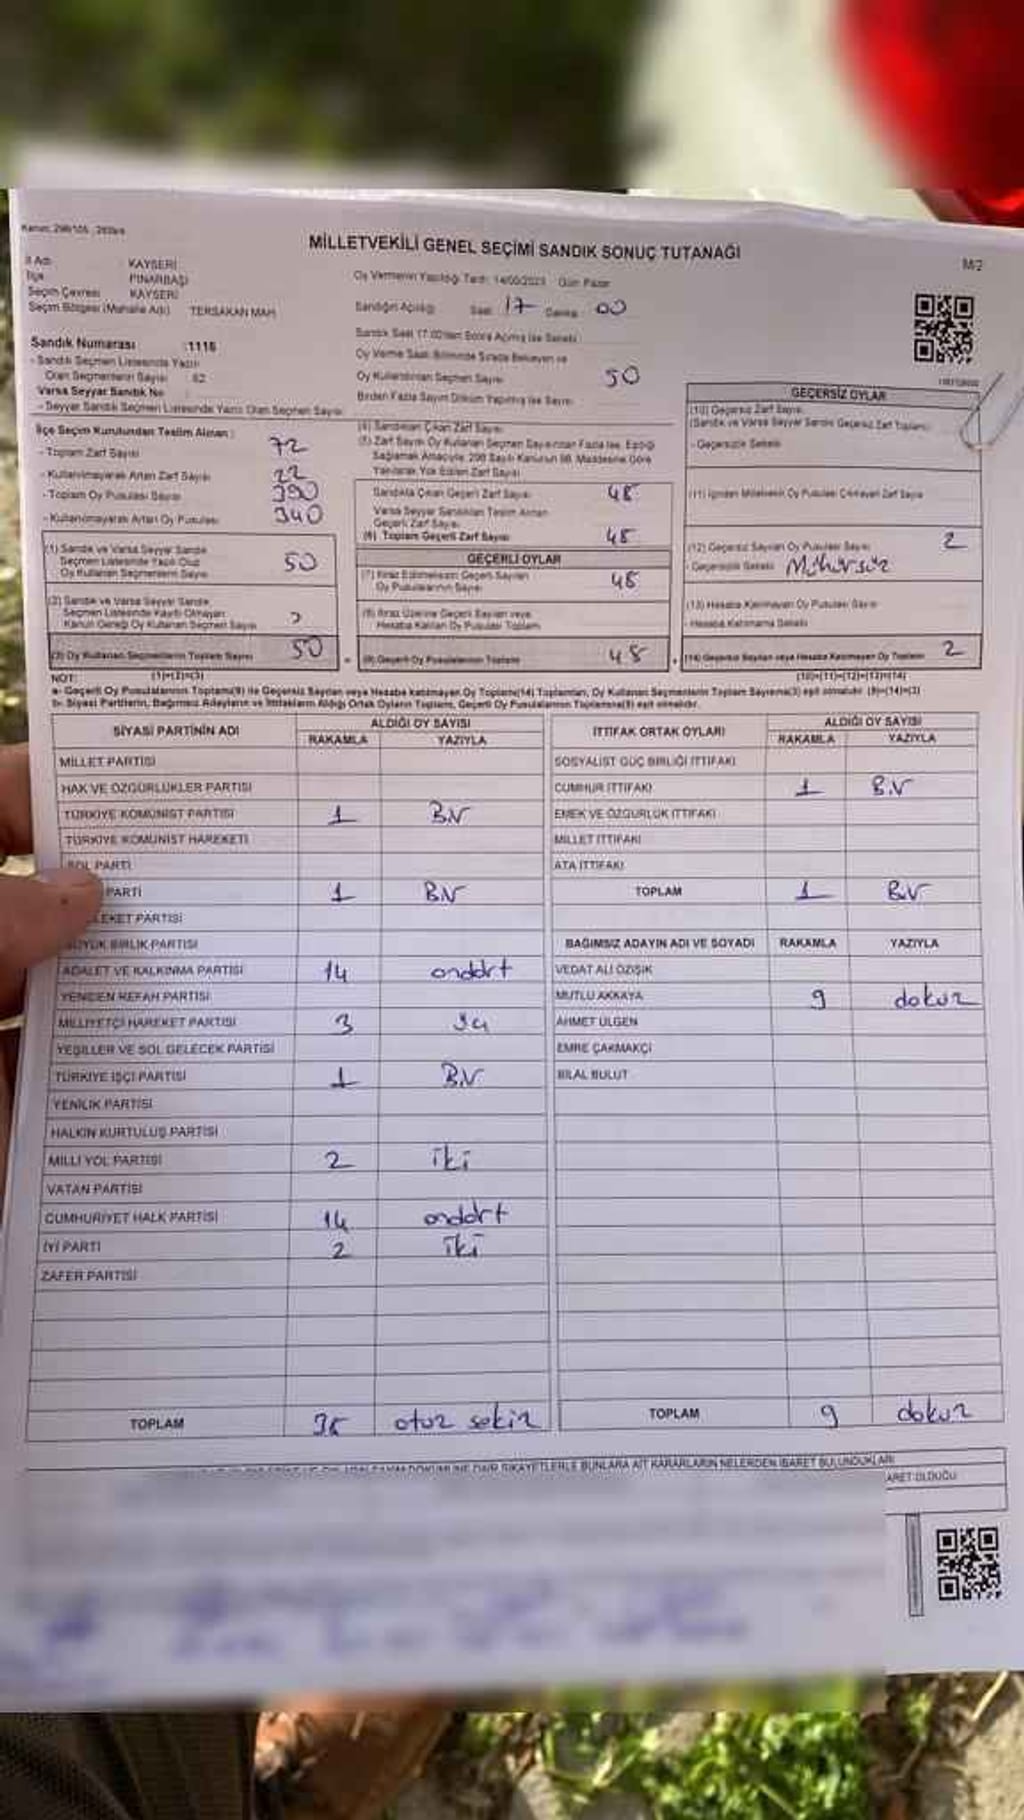 Kanun: 298/105 , 2839/s
MİLLETVEKİLİ GENEL SEÇİMİ SANDIK SONUÇ TUTANAĞI
M/2
İl Adı : KAYSERİ
İlçe : PINARBAŞI
Seçim Çevresi : KAYSERİ
Seçim Bölgesi (Mahalle Adı) : TERSAKAN MAH.
Oy Vermenin Yapıldığı Tarih: 14/05/2023 Gün Pazar
Sandığın Açılışı Saat 17 Dakika 00
Sandık Saat 17.00'den Sonra Açılmış İse Sebebi
Oy Verme Saati Bitiminde Sırada Bekleyen ve
Oy Kullandırılan Seçmen Sayısı 50
Birden Fazla Sayım Döküm Yapılmış İse Sayısı
Sandık Numarası :1116
- Sandık Seçmen Listesinde Yazılı
Olan Seçmenlerin Sayısı : 62
Varsa Seyyar Sandık No :
- Seyyar Sandık Seçmen Listesinde Yazılı Olan Seçmen Sayısı
İlçe Seçim Kurulundan Teslim Alınan :
- Toplam Zarf Sayısı 72
- Kullanılmayarak Artan Zarf Sayısı 22
- Toplam Oy Pusulası Sayısı 390
- Kullanılmayarak Artan Oy Pusulası 340
(1) Sandık ve Varsa Seyyar Sandık
Seçmen Listesinde Yazılı Olup
Oy Kullanan Seçmenlerin Sayısı 50
(2) Sandık ve Varsa Seyyar Sandık
Seçmen Listesinde Kayıtlı Olmayan
Kanun Gereği Oy Kullanan Seçmen Sayısı
(3) Oy Kullanan Seçmenlerin Toplam Sayısı 50
(1)+(2)=(3)
(4) Sandıktan Çıkan Zarf Sayısı
(5) Zarf Sayısı Oy Kullanan Seçmen Sayısından Fazla İse, Eşitliği
Sağlamak Amacıyla, 298 Sayılı Kanunun 98. Maddesine Göre
Yakılarak Yok Edilen Zarf Sayısı
Sandıkta Çıkan Geçerli Zarf Sayısı 48
Varsa Seyyar Sandıktan Teslim Alınan
Geçerli Zarf Sayısı
(6) Toplam Geçerli Zarf Sayısı 48
GEÇERLİ OYLAR
(7) İtiraz Edilmeksizin Geçerli Sayılan
Oy Pusulalarının Sayısı 48
(8) İtiraz Üzerine Geçerli Sayılan veya
Hesaba Katılan Oy Pusulası Toplamı
(9) Geçerli Oy Pusulalarının Toplamı 48
GEÇERSİZ OYLAR
(10) Geçersiz Zarf Sayısı
(Sandık ve Varsa Seyyar Sandık Geçersiz Zarf Toplamı)
- Geçersizlik Sebebi
(11) İçinden Milletvekili Oy Pusulası Çıkmayan Zarf Sayısı
(12) Geçersiz Sayılan Oy Pusulası Sayısı 2
- Geçersizlik Sebebi Mühürsüz
(13) Hesaba Katılmayan Oy Pusulası Sayısı
- Hesaba Katılmama Sebebi
(14) Geçersiz Sayılan veya Hesaba Katılmayan Oy Toplamı 2
(10)+(11)+(12)+(13)=(14)
NOT:
a- Geçerli Oy Pusulalarının Toplamı(9) ile Geçersiz Sayılan veya Hesaba katılmayan Oy Toplamı(14) Toplamları, Oy Kullanan Seçmenlerin Toplam Sayısına(3) eşit olmalıdır. (9)+(14)=(3)
b- Siyasi Partilerin, Bağımsız Adayların ve İttifakların Aldığı Ortak Oyların Toplamı, Geçerli Oy Pusulalarının Toplamına(9) eşit olmalıdır.
SİYASİ PARTİNİN ADI ALDIĞI OY SAYISI
RAKAMLA YAZIYLA
MİLLET PARTİSİ
HAK VE ÖZGÜRLÜKLER PARTİSİ
TÜRKİYE KOMÜNİST PARTİSİ 1 BİR
TÜRKİYE KOMÜNİST HAREKETİ
SOL PARTİ
PARTİ 1 BİR
LEKET PARTİSİ
BÜYÜK BİRLİK PARTİSİ
ADALET VE KALKINMA PARTİSİ 14 ondört
YENİDEN REFAH PARTİSİ
MİLLİYETÇİ HAREKET PARTİSİ 3
YEŞİLLER VE SOL GELECEK PARTİSİ
TÜRKİYE İŞÇİ PARTİSİ 1 BİR
YENİLİK PARTİSİ
HALKIN KURTULUŞ PARTİSİ
MİLLİ YOL PARTİSİ 2 iki
VATAN PARTİSİ
CUMHURİYET HALK PARTİSİ 14 ondört
İYİ PARTİ 2 iki
ZAFER PARTİSİ
TOPLAM 38 otuz sekiz
İTTİFAK ORTAK OYLARI ALDIĞI OY SAYISI
RAKAMLA YAZIYLA
SOSYALİST GÜÇ BİRLİĞİ İTTİFAKI
CUMHUR İTTİFAKI 1 BİR
EMEK VE ÖZGÜRLÜK İTTİFAKI
MİLLET İTTİFAKI
ATA İTTİFAKI
TOPLAM 1 BİR
BAĞIMSIZ ADAYIN ADI VE SOYADI RAKAMLA YAZIYLA
VEDAT ALİ ÖZIŞIK
MUTLU AKKAYA 9 dokuz
AHMET ÜLGEN
EMRE ÇAKMAKÇİ
BİLAL BULUT
TOPLAM 9 dokuz
SAYIM DÖKÜMÜNE DAİR ŞİKAYETLERLE BUNLARA AİT KARARLARIN NELERDEN İBARET BULUNDUKLARI
ARET OLDUĞU